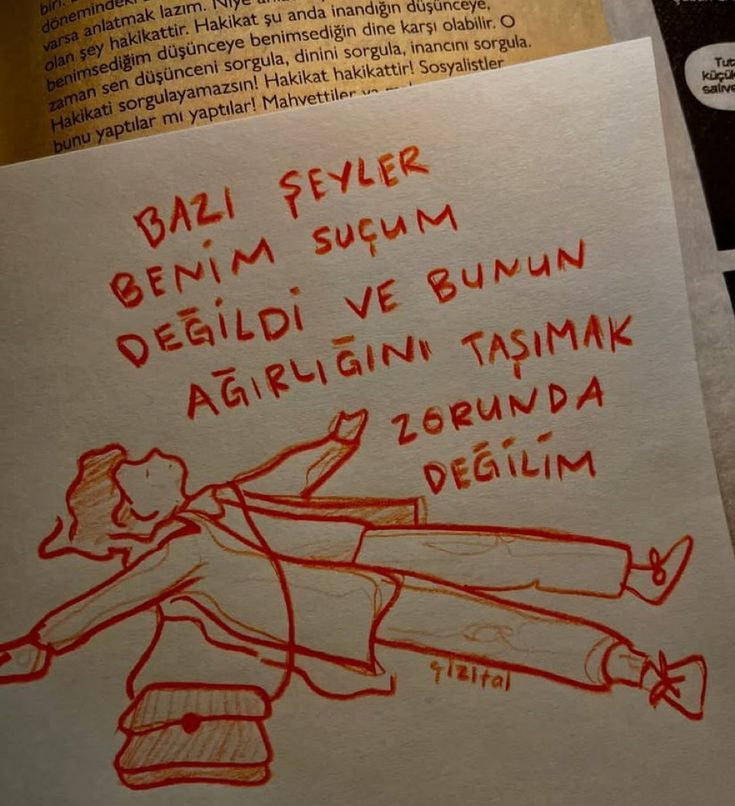 biri.
dönemindeki
varsa anlatmak lazım. Niye
olan şey hakikattir. Hakikat şu anda inandığın düşünceye,
benimsediğim düşünceye benimsediğin dine karşı olabilir. O
zaman sen düşünceni sorgula, dinini sorgula, inancını sorgula.
Hakikati sorgulayamazsın! Hakikat hakikattir! Sosyalistler
bunu yaptılar mı yaptılar! Mahvettiler
küçük
BAZI ŞEYLER
BENİM SUÇUM
DEĞİLDİ VE BUNUN
AĞIRLIĞINI TAŞIMAK
ZORUNDA
DEĞİLİM
çizital